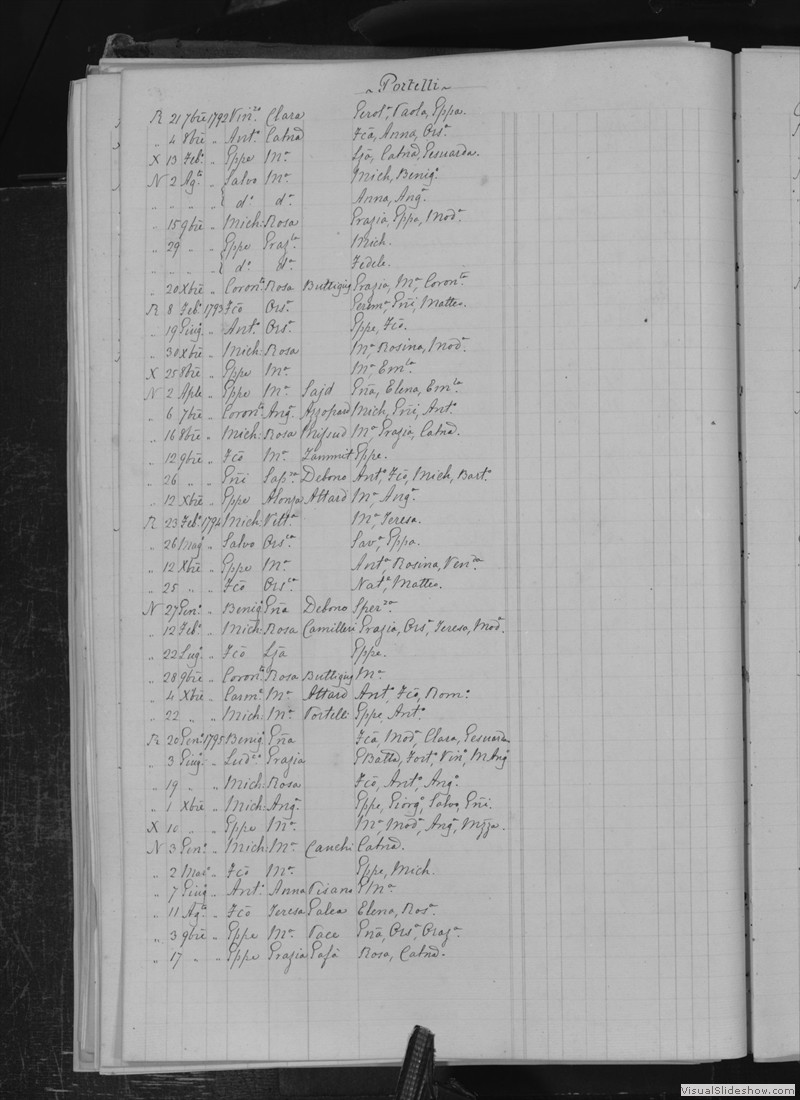 Portelli
R 21 7bre 1792 Vin.zo Clara Gerol.a, Paola, Eppa.
„ 4 8bre „ Ant.o Catnā Fcā, Anna, Ors.a
X 13 Feb.o „ Eppe M.a Ljā, Catnā, Gesuarda.
N 2 Ag.to „ Salvo M.a Mich, Benig.o
„ „ „ „ { d.o d.a Anna, Ang.a
„ 15 9bre „ Mich: Rosa Grazia, Eppa, Mod.a
„ 29 „ „ Eppe Graz.la Mich.
„ „ „ „ { d.o d.a Fedele.
„ 20 Xbre „ Coron.to Rosa Buttigieg Grazia, M.a, Coron.ta
R 8 Feb.o 1793 Fcō Ors.a Gerem.a, Gñi, Matteo.
„ 19 Giug.o „ Ant.o Ors.a Eppe, Fcō.
„ 30 Xbre „ Mich: Rosa M.a, Rosina, Mod.a
X 25 8bre „ Eppe M.a M.a, Em.la
N 2 Aple „ Eppe M.a Sajd Gña, Elena, Em.la
„ 6 7bre „ Coron.to Ang.a Azzopard Mich, Gñi, Ant.o
„ 16 8bre „ Mich: Rosa Mifsud M.a, Grazia, Catnā.
„ 12 9bre „ Fcō M.a Zammit Eppe.
„ 26 „ „ Gñi Sap.za Debono Ant.o, Fcō, Mich, Bart.o
„ 12 Xbre „ Eppe Alonza Attard M.a, Ang.a
R 23 Feb.o 1794 Mich: Vitt.a M.a, Teresa.
„ 26 Mag.o „ Salvo Ors.la Sav.a, Eppa.
„ 12 Xbre „ Eppe M.a Ant.a, Rosina, Ven.da
„ 25 „ „ Fcō Ors.la Nat.a, Matteo.
N 27 Gen.o „ Benig.o Gña Debono Sper.za
„ 12 Feb.o „ Mich: Rosa Camilleri Grazia, Ors.a, Teresa, Mod.a
„ 22 Lug.o „ Fcō Ljā Eppa.
„ 28 9bre „ Coron.to Rosa Buttigieg M.a
„ 4 Xbre „ Carm.o M.a Attard Ant.o, Fcō, Rom.o
„ 22 „ „ Mich: M.a Portelli Eppe, Ant.o
R 20 Gen.o 1795 Benig.o Gña Fcā, Mod.a, Clara, Gesuarda
„ 3 Giug.o „ Lud.co Grazia GBatta, Fort.o, Vin.o, MAng.o
„ 19 „ „ Mich: Rosa Fcō, Ant.o, Ang.o
„ 1 Xbre „ Mich: Ang.a Eppe, Giorg.o, Salvo, Gñi.
X 10 „ „ Eppe M.a M.a, Mod.a, Ang.a, Mzza.
N 3 Gen.o „ Mich: M.a Cauchi Catnā.
„ 2 Mag.o „ Fcō M.a Eppe, Mich.
„ 7 Giug.o „ Ant.o Anna Pisano GM.a
„ 11 Ag.to „ Fcō Teresa Galea Elena, Ros.a
„ 3 9bre „ Eppe M.a Pace Gña, Ors.a, Oraz.a
„ 17 „ „ Eppe Grazia Gafà Rosa, Catnā.
VisualSlideshow.com